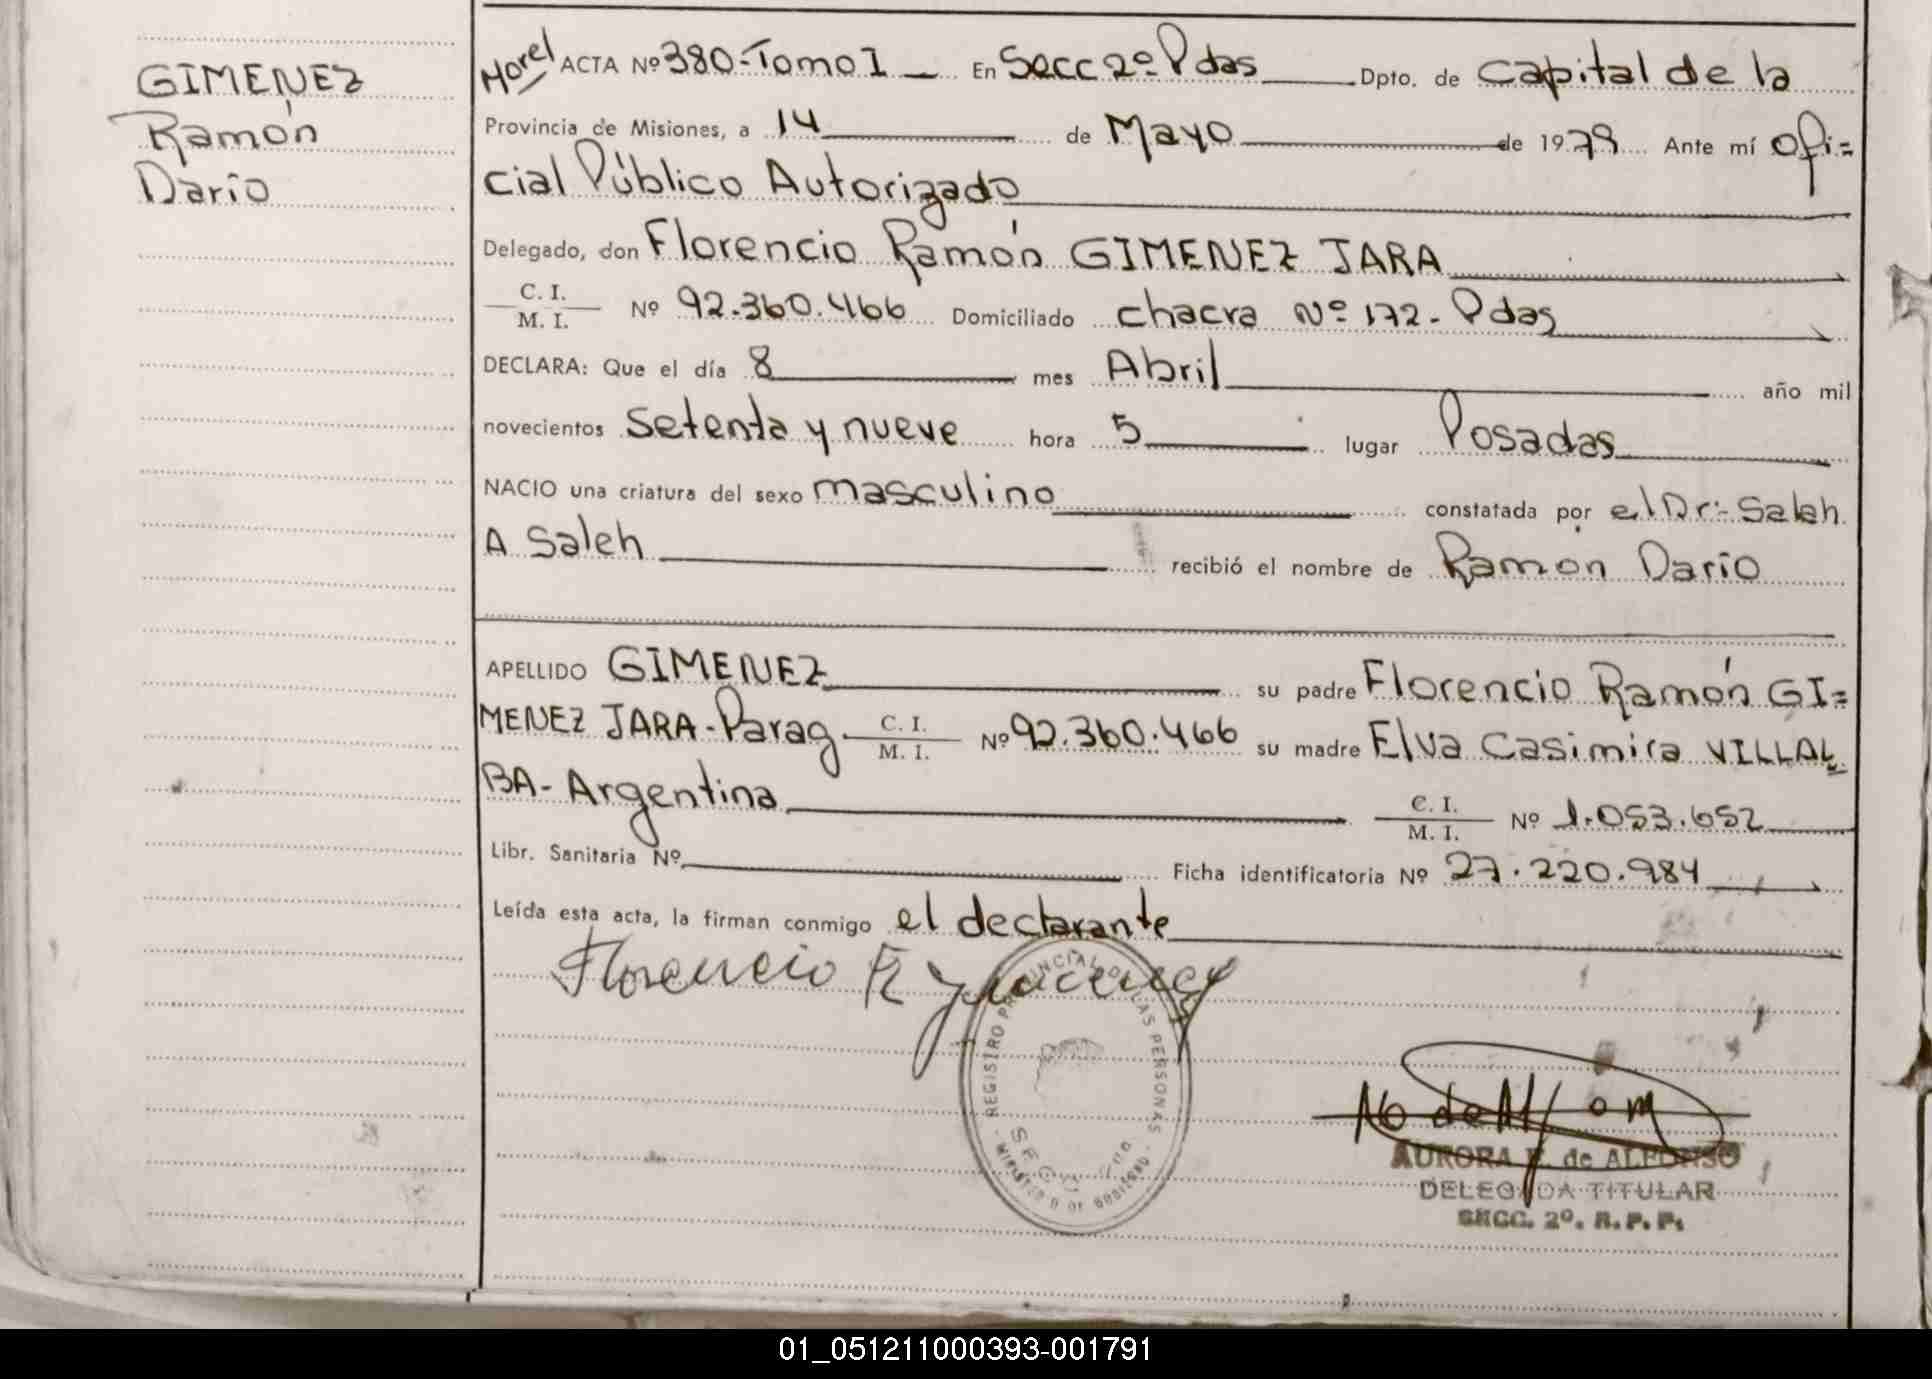 GIMENEZ
Ramón
Darío
Morel ACTA Nº 380-Tomo I En Secc 2º Pdas Dpto. de Capital de la
Provincia de Misiones, a 14 de Mayo de 1979 Ante mí Ofi=
cial Público Autorizado
Delegado, don Florencio Ramón GIMENEZ JARA
C. I.
M. I. Nº 92.360.466 Domiciliado chacra Nº 172- Pdas
DECLARA: Que el día 8 mes Abril año mil
novecientos setenta y nueve hora 5 lugar Posadas
NACIO una criatura del sexo masculino constatada por el Dr:- Saleh
A Saleh recibió el nombre de Ramón Darío
APELLIDO GIMENEZ su padre Florencio Ramón GI=
MENEZ JARA-Parag C. I.
M. I. Nº 92.360.466 su madre Elva Casimira VILLAL
BA- Argentina C. I.
M. I. Nº 1.053.652
Libr. Sanitaria Nº Ficha identificatoria Nº 27.220.984
Leída esta acta, la firman conmigo el declarante
Florencio R Gimenez
REGISTRO PROVINCIAL DE LAS PERSONAS
MINISTERIO DE GOBIERNO
SECC
AURORA de ALFONSO
DELEGADA TITULAR
SECC. 2º. R. P. P.
01_051211000393-001791